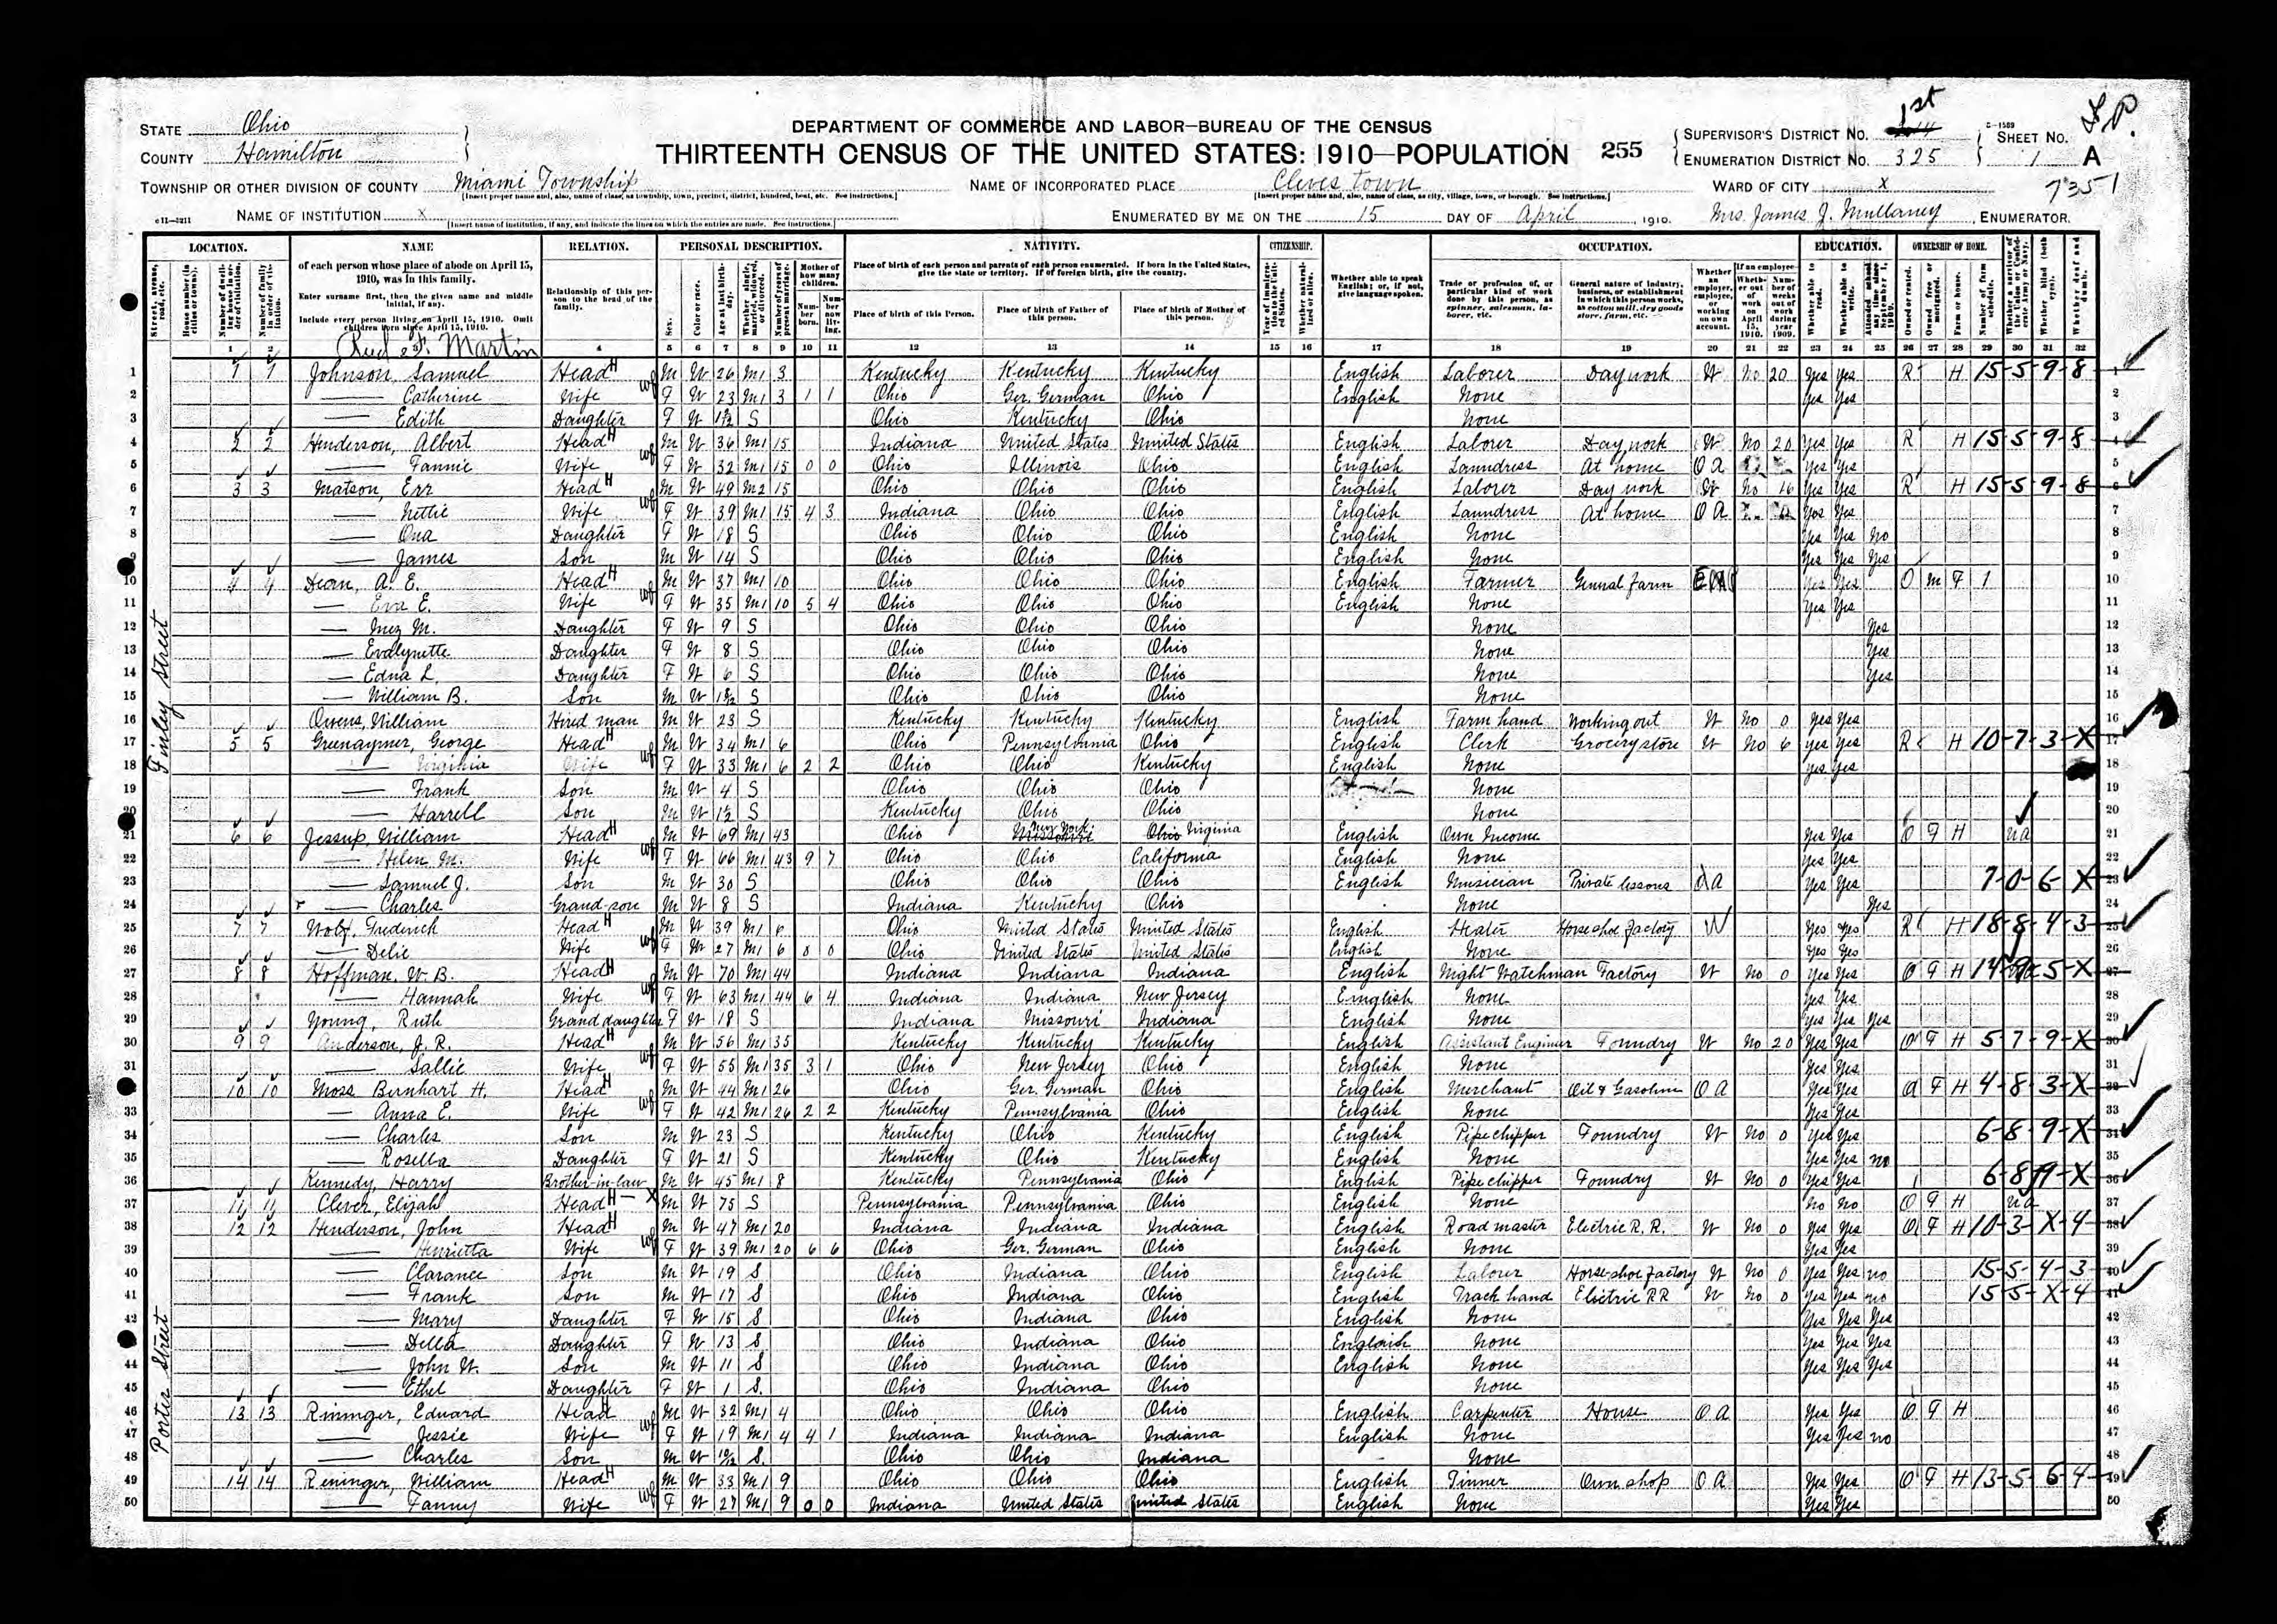 1st
STATE Ohio
COUNTY Hamilton
DEPARTMENT OF COMMERCE AND LABOR—BUREAU OF THE CENSUS
THIRTEENTH CENSUS OF THE UNITED STATES: 1910—POPULATION 255
SUPERVISOR'S DISTRICT No.
ENUMERATION DISTRICT No. 325
SHEET No. 1 A
7351
TOWNSHIP OR OTHER DIVISION OF COUNTY Miami Township
NAME OF INCORPORATED PLACE Cleves town
WARD OF CITY X
NAME OF INSTITUTION X
ENUMERATED BY ME ON THE 15 DAY OF April, 1910. Mrs. James J. Mullaney, ENUMERATOR.
LOCATION. NAME RELATION. PERSONAL DESCRIPTION. NATIVITY. CITIZENSHIP. OCCUPATION. EDUCATION. OWNERSHIP OF HOME.
of each person whose place of abode on April 15, 1910, was in this family.
Enter surname first, then the given name and middle initial, if any.
Include every person living on April 15, 1910. Omit children born since April 15, 1910.
Relationship of this person to the head of the family.
Place of birth of each person and parents of each person enumerated. If born in the United States, give the state or territory. If of foreign birth, give the country.
Place of birth of this Person. Place of birth of Father of this person. Place of birth of Mother of this person.
Whether able to speak English; or, if not, give language spoken.
Finley Street
Porter Street
1 1 1 Johnson, Samuel Head M W 26 M1 3 Kentucky Kentucky Kentucky English Laborer Day work W No 20 Yes Yes R H 15-5-9-8
2 — Catherine Wife F W 23 M1 3 1 1 Ohio Ger. German Ohio English None Yes Yes
3 — Edith Daughter F W S Ohio Kentucky Ohio None
4 2 2 Henderson, Albert Head M W 36 M1 15 Indiana United States United States English Laborer Day work W No 20 Yes Yes R H 15-5-9-8
5 — Fannie Wife F W 32 M1 15 0 0 Ohio Illinois Ohio English Laundress At home OA Yes Yes
6 3 3 Matson, Err Head M W 49 M2 15 Ohio Ohio Ohio English Laborer Day work W No 16 Yes Yes R H 15-5-9-8
7 — Nettie Wife F W 39 M1 15 4 3 Indiana Ohio Ohio English Laundress At home OA Yes Yes
8 — Ona Daughter F W 18 S Ohio Ohio Ohio English None Yes Yes No
9 — James Son M W 14 S Ohio Ohio Ohio English None Yes Yes Yes
10 4 4 Dean, A. E. Head M W 37 M1 10 Ohio Ohio Ohio English Farmer General Farm Yes Yes O M F 1
11 — Eva E. Wife F W 35 M1 10 5 4 Ohio Ohio Ohio English None Yes Yes
12 — Inez M. Daughter F W 9 S Ohio Ohio Ohio None Yes
13 — Evalynette Daughter F W 8 S Ohio Ohio Ohio None Yes
14 — Edna L. Daughter F W 6 S Ohio Ohio Ohio None Yes
15 — William B. Son M W S Ohio Ohio Ohio None
16 Owens, William Hired man M W 23 S Kentucky Kentucky Kentucky English Farm hand Working out W No 0 Yes Yes
17 5 5 Greenaymer, George Head M W 34 M1 6 Ohio Pennsylvania Ohio English Clerk Grocery store W No 6 Yes Yes R H 10-7-3-X
18 — Virginia Wife F W 33 M1 6 2 2 Ohio Ohio Kentucky English None Yes Yes
19 — Frank Son M W 4 S Ohio Ohio Ohio None
20 — Harrell Son M W S Kentucky Ohio Ohio None
21 6 6 Jessup, William Head M W 69 M1 43 Ohio New York Virginia English Own Income Yes Yes O F H ua
22 — Helen M. Wife F W 66 M1 43 9 7 Ohio Ohio California English None Yes Yes
23 — Samuel J. Son M W 30 S Ohio Ohio Ohio English Musician Private lessons OA Yes Yes 7-0-6-X
24 — Charles Grand-son M W 8 S Indiana Kentucky Ohio None Yes
25 7 7 Wolf, Frederick Head M W 39 M1 6 Ohio United States United States English Heater Horseshoe Factory W Yes Yes R H 18-8-4-3
26 — Delie Wife F W 27 M1 6 0 0 Ohio United States United States English None Yes Yes
27 8 8 Hoffman, W. B. Head M W 70 M1 44 Indiana Indiana Indiana English Night Watchman Factory W No 0 Yes Yes O F H
28 — Hannah Wife F W 63 M1 44 6 4 Indiana Indiana New Jersey English None Yes Yes
29 Young, Ruth Grand daughter F W 18 S Indiana Missouri Indiana English None Yes Yes Yes
30 9 9 Anderson, J. R. Head M W 56 M1 35 Kentucky Kentucky Kentucky English Assistant Engineer Foundry W No 20 Yes Yes O F H 5-7-9-X
31 — Sallie Wife F W 55 M1 35 3 1 Ohio New Jersey Ohio English None Yes Yes
10 10 Moss Bernhart H. Head M W 44 M1 26 Ohio Ger. German Ohio English Merchant Oil & Gasoline OA Yes Yes O F H 4-8-3-X
33 — Anna E. Wife F W 42 M1 26 2 2 Kentucky Pennsylvania Ohio English None Yes Yes
34 — Charles Son M W 23 S Kentucky Ohio Kentucky English Pipe chipper Foundry W No 0 Yes Yes 6-8-9-X
35 — Rosella Daughter F W 21 S Kentucky Ohio Kentucky English None Yes Yes no
36 Kennedy, Harry Brother-in-law M W 45 M1 8 Kentucky Pennsylvania Ohio English Pipe chipper Foundry W No 0 Yes Yes 6-8-9-X
37 11 11 Clever, Elijah Head M W 75 S Pennsylvania Pennsylvania Ohio English None No No O F H ua
38 12 12 Henderson, John Head M W 47 M1 20 Indiana Indiana Indiana English Road master Electric R.R. W No 0 Yes Yes O F H 10-3-X-4
39 — Henrietta Wife F W 39 M1 20 6 6 Ohio Ger. German Ohio English None Yes Yes
40 — Clarance Son M W 19 S Ohio Indiana Ohio English Laborer Horse-shoe Factory W No 0 Yes Yes no 15-5-4-3
41 — Frank Son M W 17 S Ohio Indiana Ohio English Track hand Electric RR W No 0 Yes Yes no 15-5-X-4
42 — Mary Daughter F W 15 S Ohio Indiana Ohio English None Yes Yes Yes
43 — Della Daughter F W 13 S Ohio Indiana Ohio English None Yes Yes Yes
44 — John W. Son M W 11 S Ohio Indiana Ohio English None Yes Yes Yes
45 — Ethel Daughter F W 1 S. Ohio Indiana Ohio None
46 13 13 Rininger, Edward Head M W 32 M1 4 Ohio Ohio Ohio English Carpenter House OA Yes Yes O F H
47 — Jessie Wife F W 19 M1 4 4 1 Indiana Indiana Indiana English None Yes Yes no
48 — Charles Son M W S. Ohio Ohio Indiana None
49 14 14 Reninger, William Head M W 33 M1 9 Ohio Ohio Ohio English Tinner Own shop OA Yes Yes O F H 13-5-6-4
50 — Fanny Wife F W 27 M1 9 0 0 Indiana United States United States English None Yes Yes